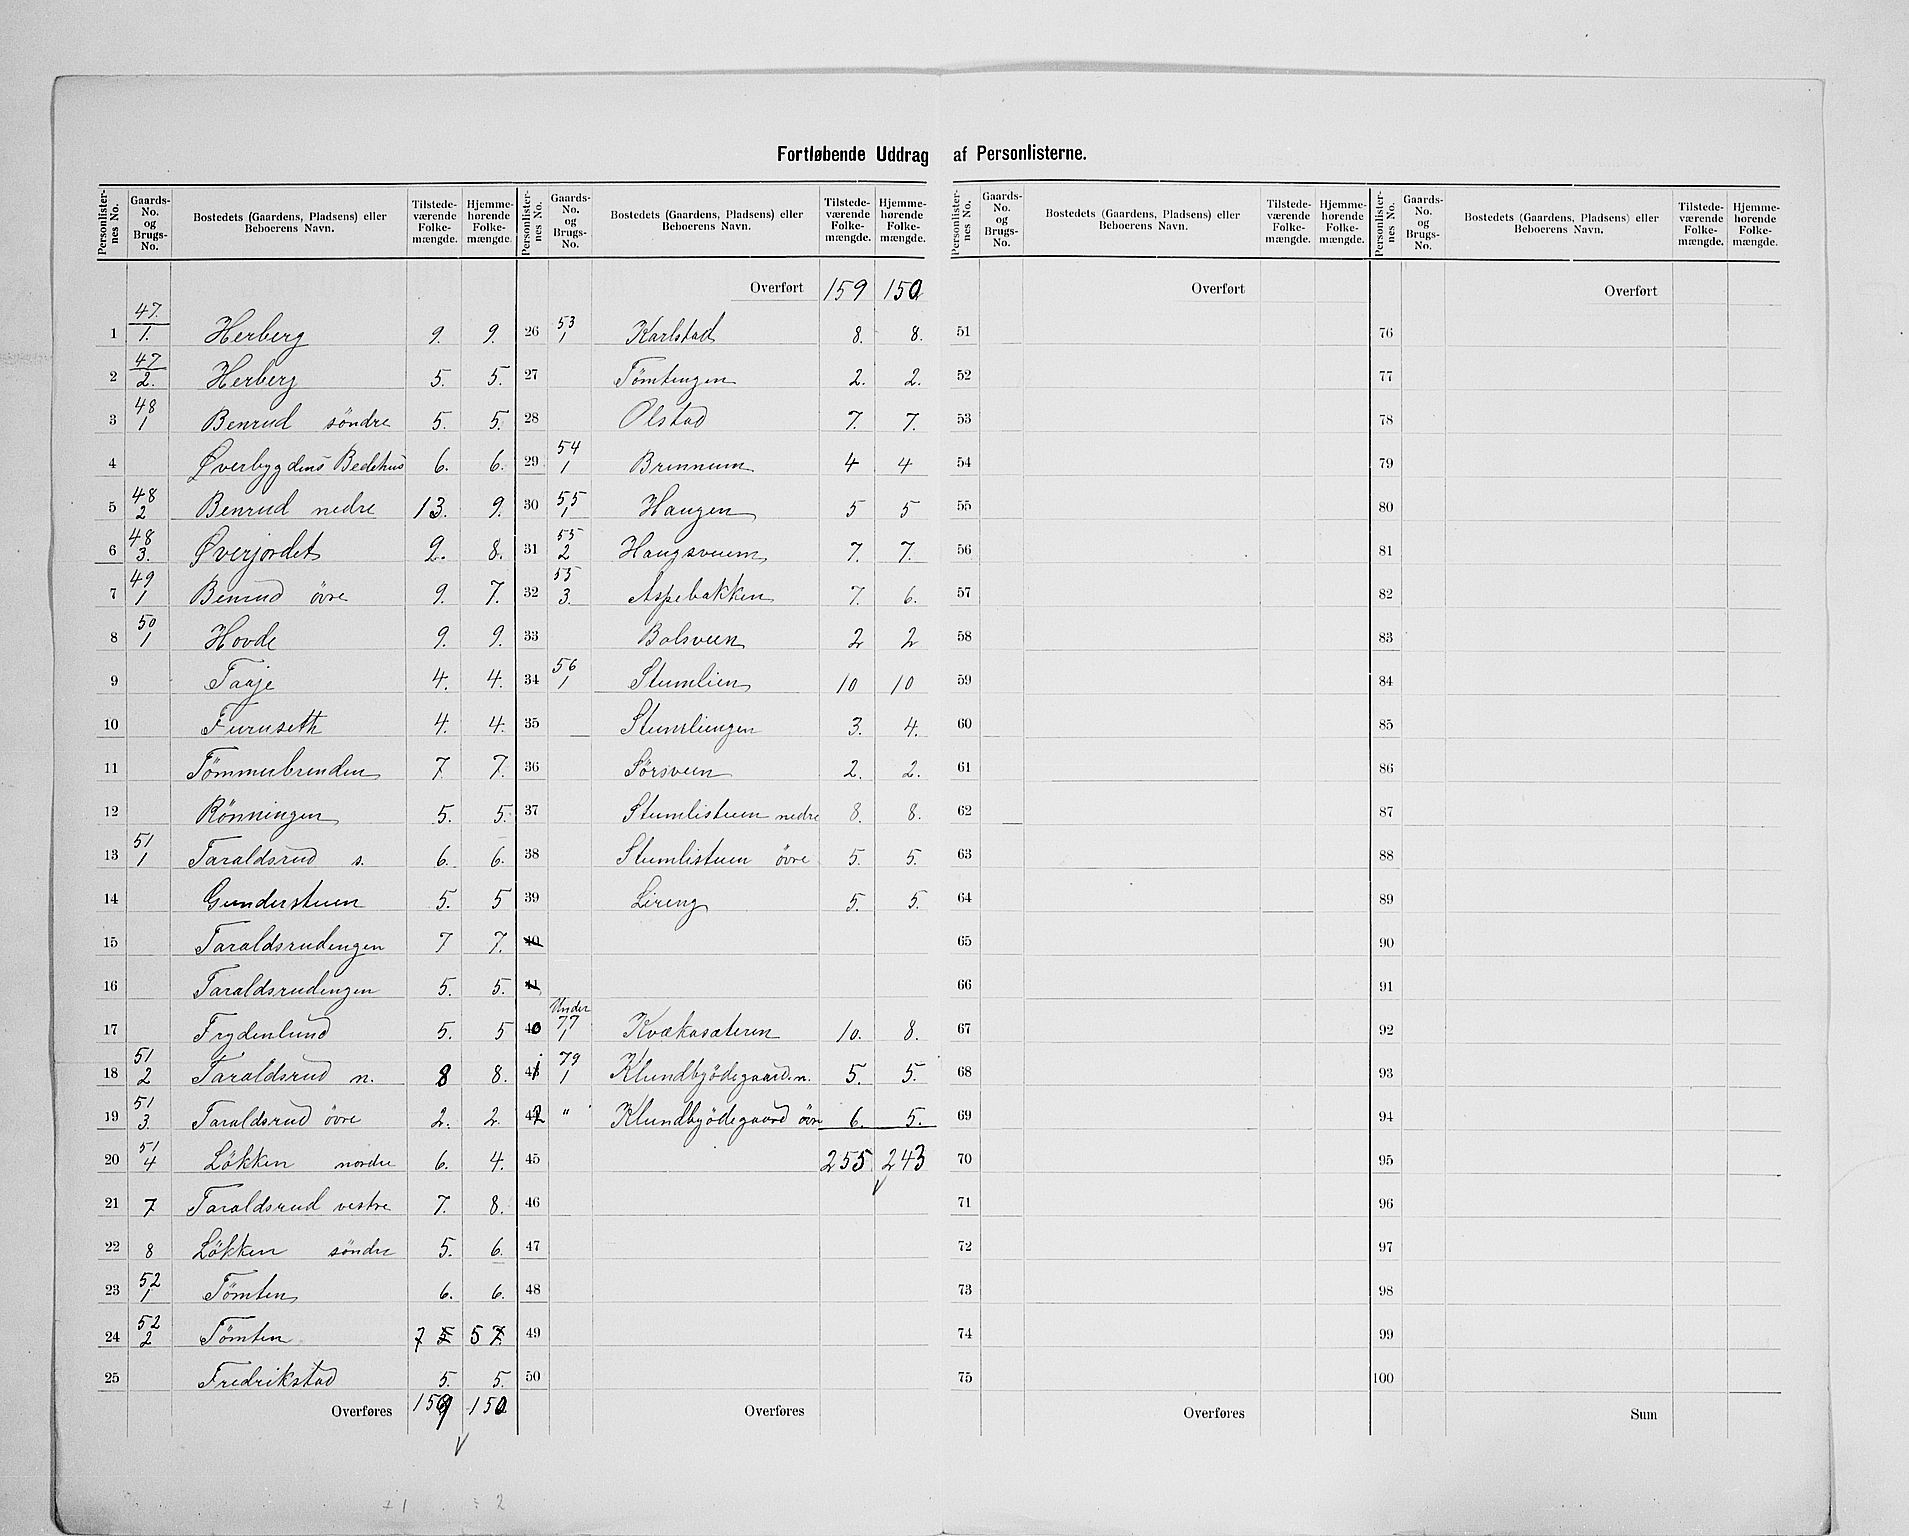 Fortløbende Uddrag af Personlisterne.
Personlister-nes No. | Gaards-No. og Brugs-No. | Bostedets (Gaardens, Pladsens) eller Beboerens Navn. | Tilstede-værende Folke-mængde. | Hjemme-hørende Folke-mængde. | Personlister-nes No. | Gaards-No. og Brugs-No. | Bostedets (Gaardens, Pladsens) eller Beboerens Navn. | Tilstede-værende Folke-mængde. | Hjemme-hørende Folke-mængde.
Personlister-nes No. | Gaards-No. og Brugs-No. | Bostedets (Gaardens, Pladsens) eller Beboerens Navn. | Tilstede-værende Folke-mængde. | Hjemme-hørende Folke-mængde. | Personlister-nes No. | Gaards-No. og Brugs-No. | Bostedets (Gaardens, Pladsens) eller Beboerens Navn. | Tilstede-værende Folke-mængde. | Hjemme-hørende Folke-mængde.
1 47./1. Herberg 9. 9.
2 47/2. Herberg 5. 5.
3 48/1 Benrud söndre 5. 5.
4 Øverbygdens Bedehus 6. 6.
5 48/2 Benrud nedre 13. 9.
6 48/3. Øverjordet 9. 8.
7 49/1 Benrud övre 9. 7.
8 50/1 Hovde 9. 9.
9 Taaje 4. 4.
10 Furuseth 4. 4.
11 Tömmerbrenden 7. 7.
12 Rönningen 5. 5.
13 51/1 Taraldsrud s. 6. 6.
14 Gunderstuen 5. 5
15 Taraldsrudengen 7 7.
16 Taraldsrudengen 5. 5.
17 Frydenlund 5. 5
18 51/2 Taraldsrud n. 8 8.
19 51/3. Taraldsrud övre 2. 2.
20 51/4 Lökken nordre 6. 4.
21 7 Taraldsrud vestre 7. 8.
22 8 Lökken söndre 5. 6.
23 52/1 Tömten 6. 6.
24 52/2 Tömten 7 5 5 7.
25 Fredrikstad 5. 5.
Overføres 159 150
Overført 159 150
26 53/1 Karlstad 8. 8.
27 Tömtengen 2. 2.
28 Olstad 7. 7.
29 54/1 Brennum 4 4
30 55/1 Haugen 5 5
31 55/2 Haugsveen 7. 7.
32 55/3. Aspebakken 7. 6.
33 Bolsveen 2 2
34 56/1 Stumlien 10 10
35 Stumliengen 3. 4.
36 Sørsveen 2. 2.
37 Stumlistuen nedre 8. 8.
38 Stumlistuen övre 5. 5.
39 Lireng 5. 5.
40
41
40 Under 77/1 Kvækasæteren 10. 8.
41 79/1 Klundbyödegaard n. 5. 5.
42 " Klundbyödegaard övre 6. 5.
45 255 243
46
47
48
49
50
Overføres
51
52
53
54
55
56
57
58
59
60
61
62
63
64
65
66
67
68
69
70
71
72
73
74
75
Overført
Overføres
76
77
78
79
80
81
82
83
84
85
86
87
88
89
90
91
92
93
94
95
96
97
98
99
100
Overført
Sum